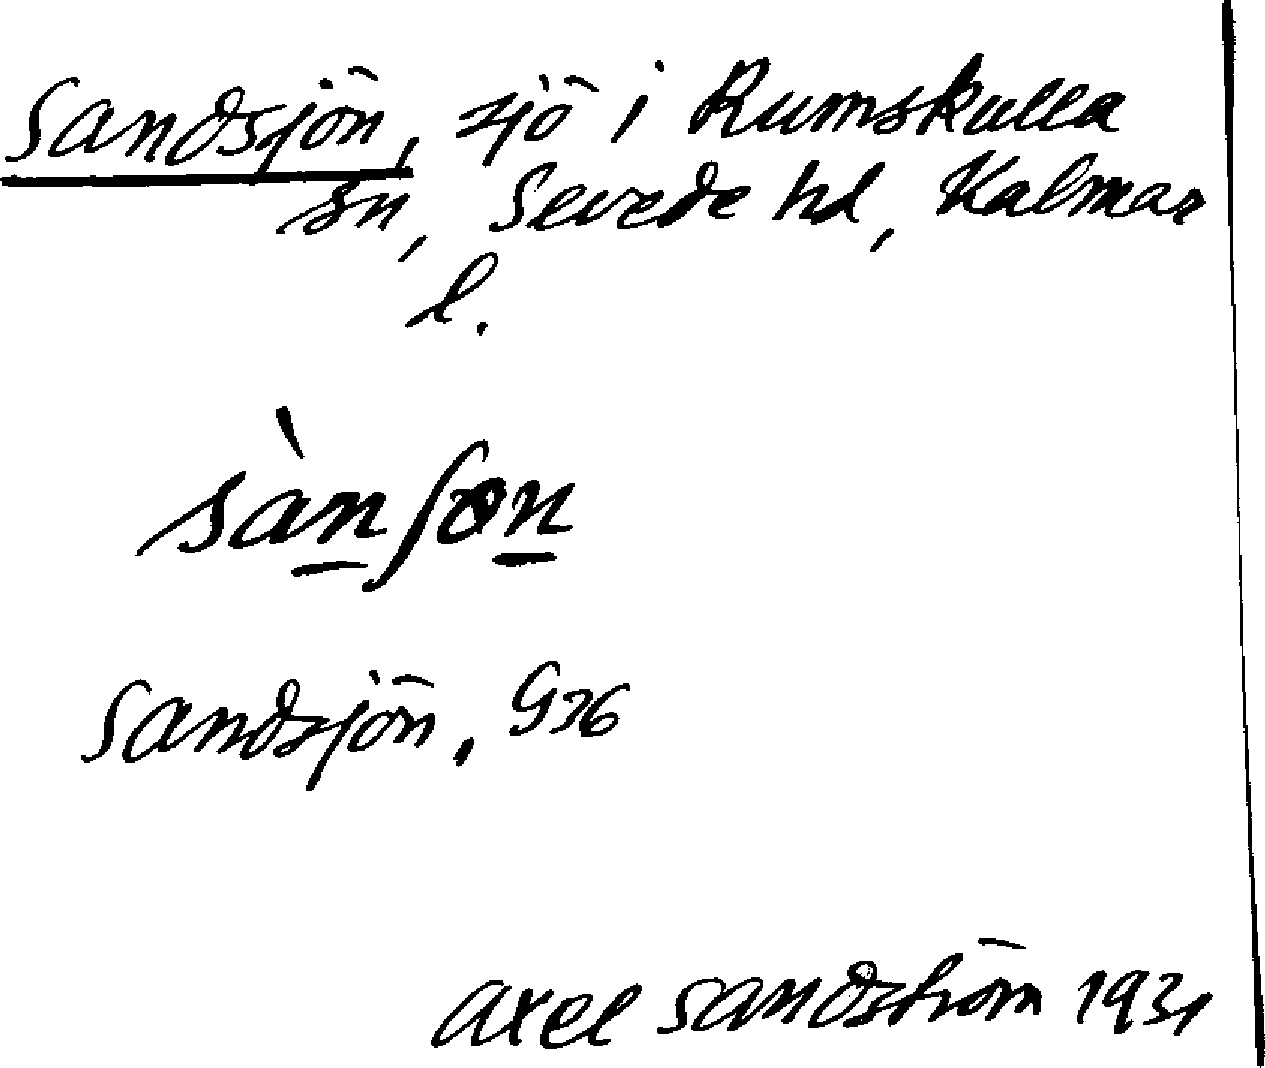 Sandsjön, sjö i Rumskulla
sn, Sevede hd, Kalmar
l.
sànʃon
Sandsjön, G36
Axel Sandström 1931